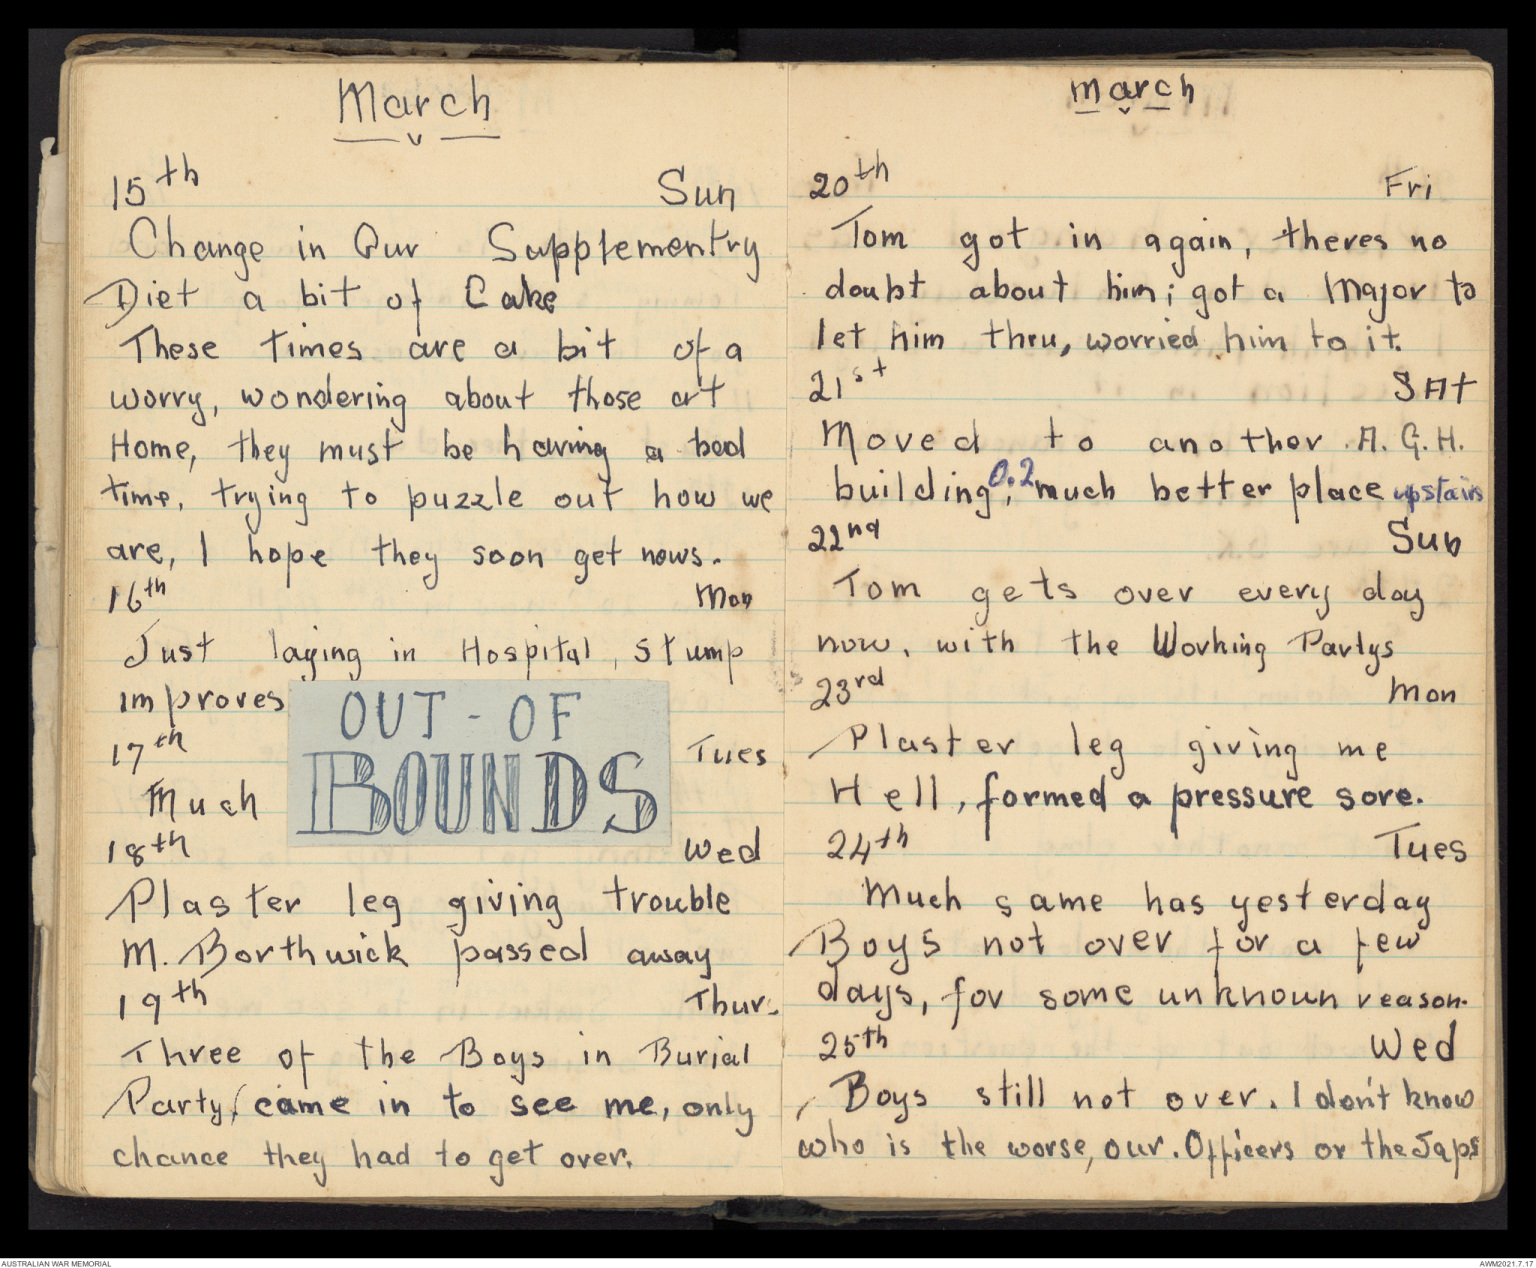 March
15th Sun
Change in Our Supplementry
Diet a bit of Cake
These times are a bit of a
worry, wondering about those at
Home, they must be having a bad
time, trying to puzzle out how we
are, I hope they soon get news.
16th Mon
Just laying in Hospital, stump
improves
OUT-OF
BOUNDS
17th Tues
Much
18th Wed
Plaster leg giving trouble
M. Borthwick passed away
19th Thurs
Three of the Boys in Burial
Party, came in to see me, only
chance they had to get over.
March
20th Fri
Tom got in again, theres no
doubt about him; got a Major to
let him thru, worried him to it.
21st SAt
Moved to another A.G.H.
building, O.2 much better place upstairs
22nd Sun
Tom gets over every day
now, with the Working Partys
23rd Mon
Plaster leg giving me
Hell, formed a pressure sore.
24th Tues
Much same has yesterday
Boys not over for a few
days, for some unknoun reason.
25th Wed
Boys still not over. I don't know
who is the worse, our Officers or the Japs
AUSTRALIAN WAR MEMORIAL
AWM2021.7.17